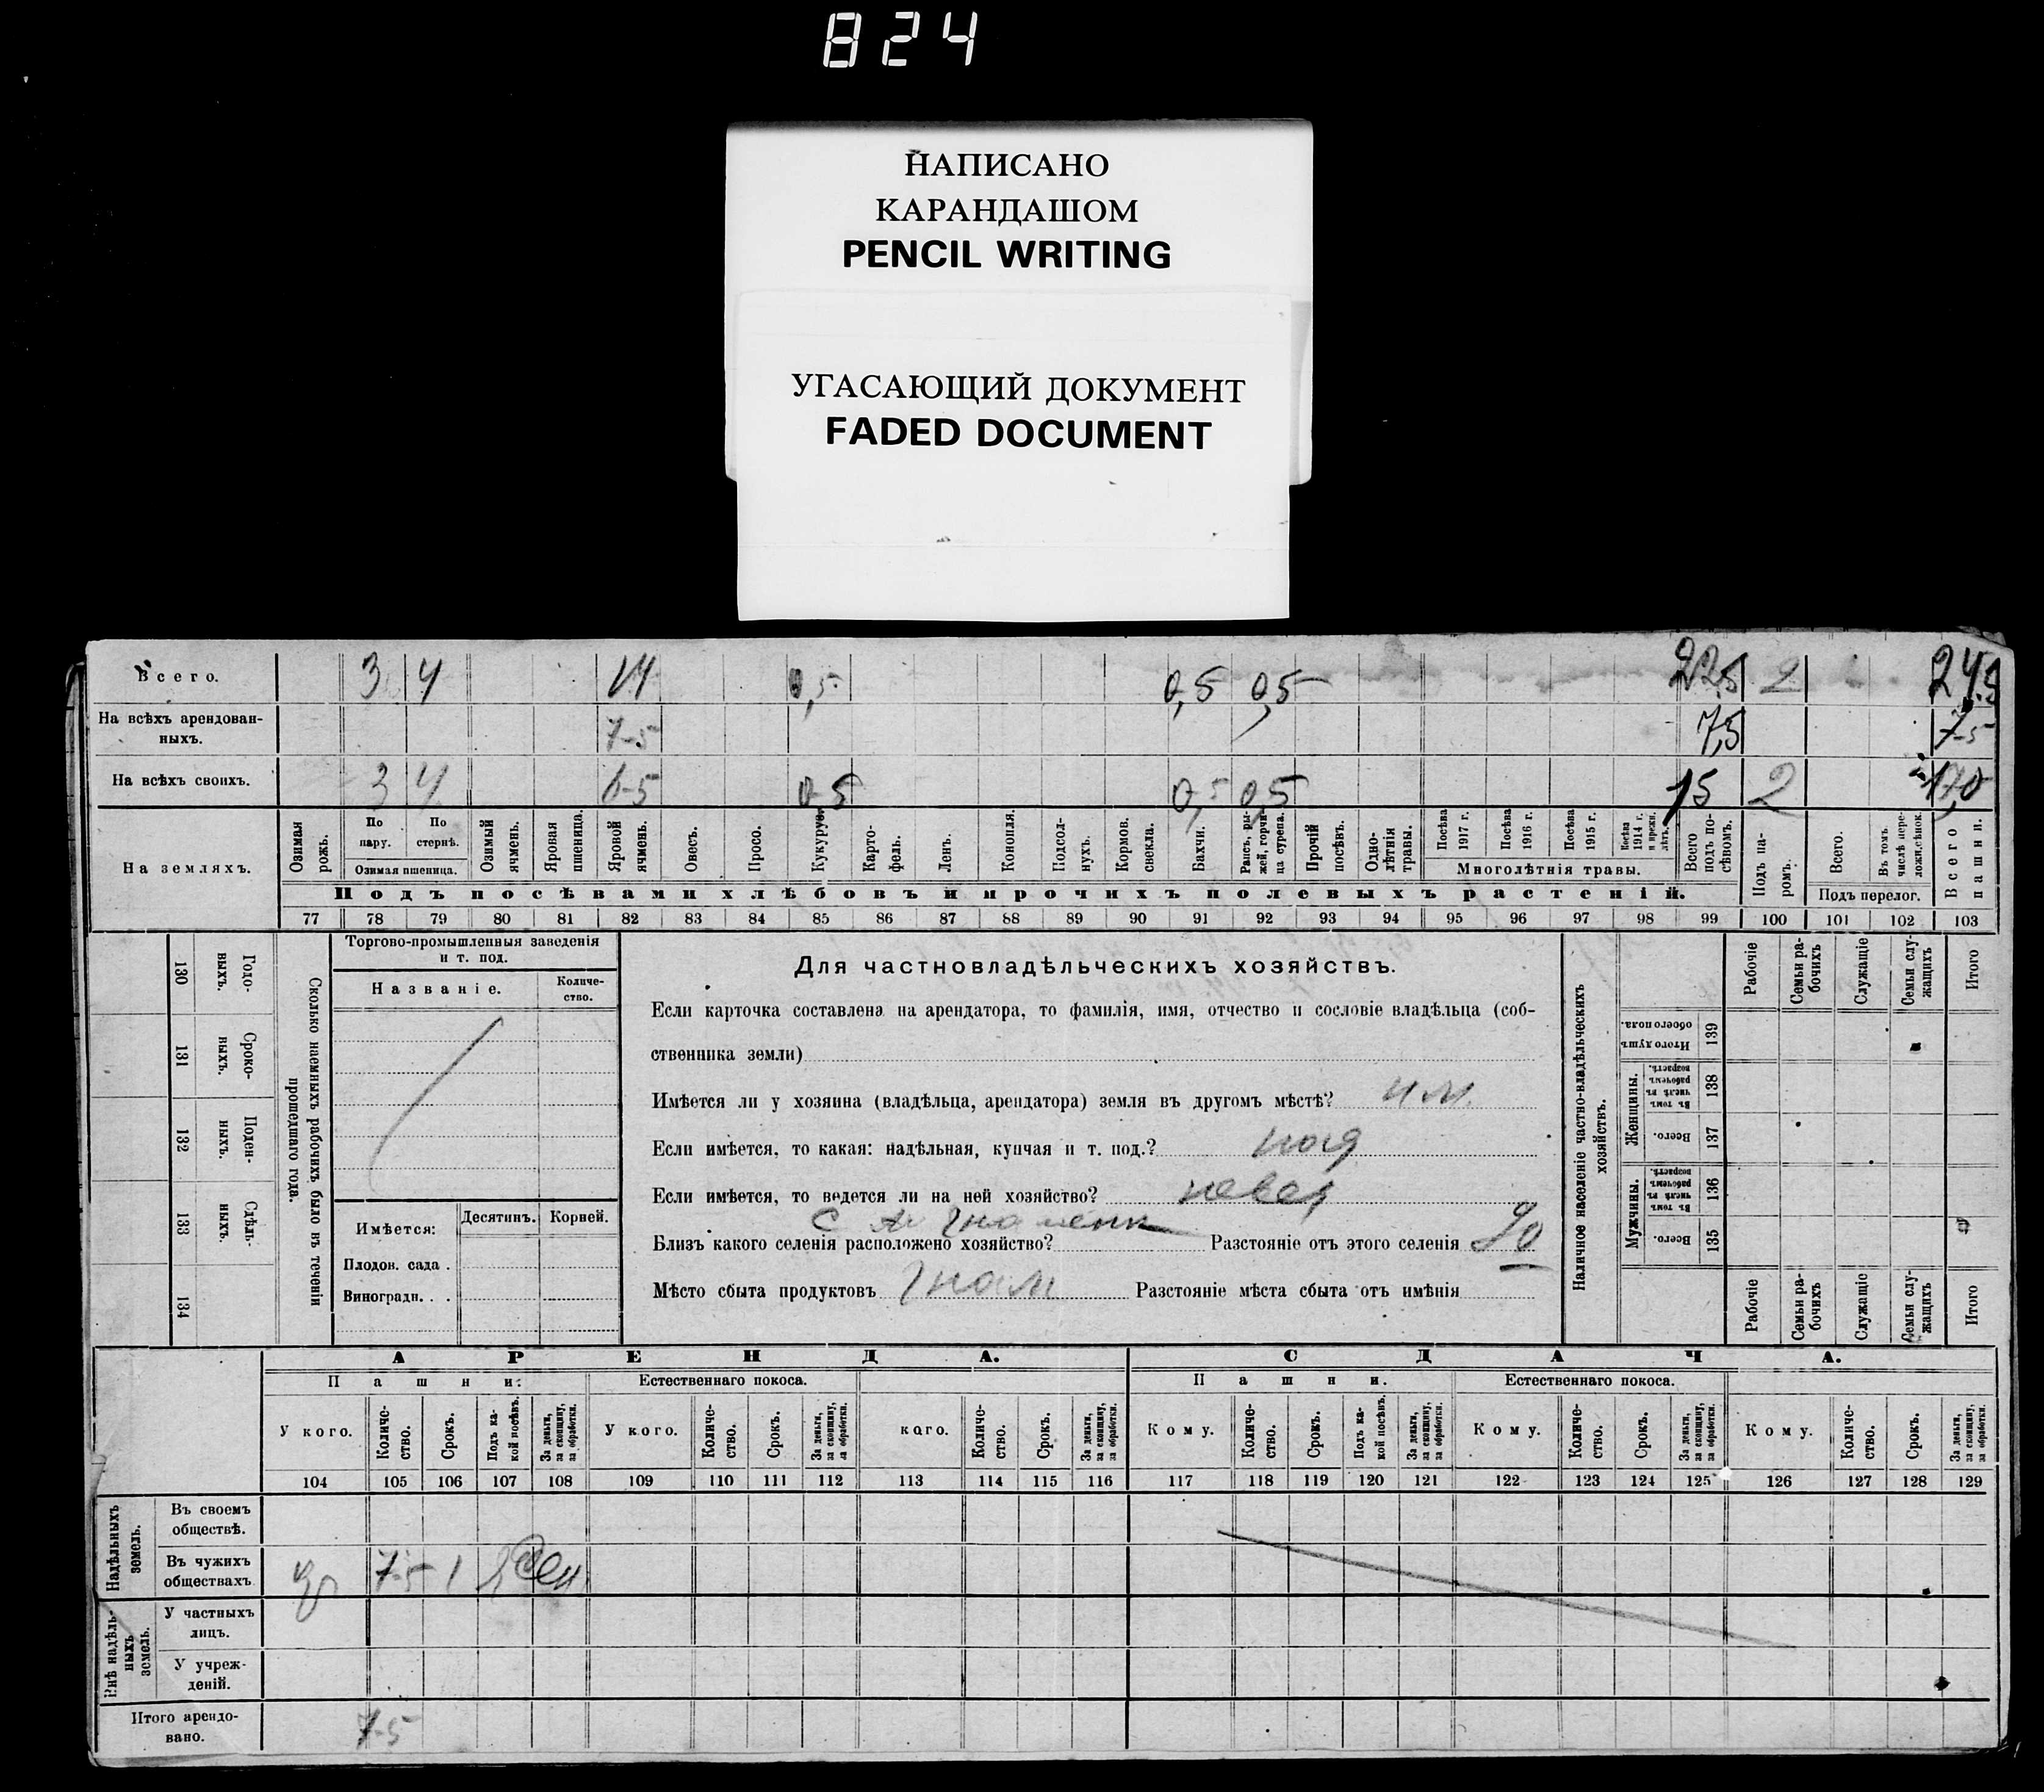 824
НАПИСАНО
КАРАНДАШОМ
PENCIL WRITING
УГАСАЮЩИЙ ДОКУМЕНТ
FADED DOCUMENT
Всего. 3 4 14 0,5 0,5 0,5 22,5 2 24,5
На всѣхъ арендован-
ныхъ. 7-5 7,5 7-5
На всѣхъ своихъ. 3 4 6-5 0-5 0,5 0,5 15 2 17,0
На земляхъ.
Озимая рожь.
По пару.
По стернѣ.
Озимая пшеница.
Озимый ячмень.
Яровая пшеница.
Яровой ячмень.
Овесъ.
Просо.
Кукуруз.
Карто-
фель.
Ленъ.
Конопля.
Подсол-
нухъ.
Кормов. свекла.
Бахчи.
Рапсъ, ры-
жей, горчи-
ца сурепа.
Прочій посѣвъ.
Одно-
лѣтнія травы.
Посѣва 1917 г.
Посѣва 1916 г.
Посѣва 1915 г.
Посѣва 1914 г. и прежн. лѣтъ.
Многолѣтнія травы.
Всего подъ по-
сѣвомъ.
Подъ па-
ромъ.
Всего.
Въ томъ числѣ пере-
ложн.сѣнок.
Подъ перелог.
Всего пашни.
Подъ посѣвами хлѣбовъ и прочихъ полевыхъ растеній.
77 78 79 80 81 82 83 84 85 86 87 88 89 90 91 92 93 94 95 96 97 98 99 100 101 102 103
130 Годо-
ныхъ.
131 Сроко-
ныхъ.
132 Поден-
ныхъ.
133 Сдѣль-
ныхъ.
134
Сколько наемныхъ рабочихъ было въ теченіи
прошедшаго года.
Торгово-промышленныя заведенія
и т. под.
Названіе.
Количе-
ство.
Имѣется:
Десятинъ. Корней.
Плодов. сада .
Виноградн. . .
Для частновладѣльческихъ хозяйствъ.
Если карточка составлена на арендатора, то фамилія, имя, отчество и сословіе владѣльца (соб-
ственника земли)
Имѣется ли у хозяина (владѣльца, арендатора) земля въ другомъ мѣстѣ?
Если имѣется, то какая: надѣльная, купчая и т. под.?
Если имѣется, то ведется ли на ней хозяйство?
Близъ какого селенія расположено хозяйство? Разстояніе отъ этого селенія
Мѣсто сбыта продуктовъ Разстояніе мѣста сбыта отъ имѣнія
Наличное населеніе частно-владѣльческихъ
хозяйствъ.
Рабочіе
Семьи ра-
бочихъ
Служащіе
Семьи слу-
жащихъ
Итого
Итого душъ обоего пола. 139
Женщины.
Въ томъ числѣ въ рабочемъ возрастѣ. 138
Всего. 137
Мужчины.
Въ томъ числѣ въ рабочемъ возрастѣ. 136
Всего. 135
Рабочіе
Семьи ра-
бочихъ
Служащіе
Семьи слу-
жащихъ
Итого
АРЕНДА. СДАЧА.
Пашни. Естественнаго покоса. Пашни. Естественнаго покоса.
У кого.
Количе-
ство.
Срокъ.
Подъ ка-
кой посѣвъ.
За деньги,
за скопщину,
за обработки.
У кого.
Количе-
ство.
Срокъ.
За деньги,
за скопщину,
за обработки.
кого.
Количе-
ство.
Срокъ.
За деньги,
за скопщину,
за обработки.
Кому.
Количе-
ство.
Срокъ.
Подъ ка-
кой посѣвъ.
За деньги,
за скопщину,
за обработки.
Кому.
Количе-
ство.
Срокъ.
За деньги,
за скопщину,
за обработки.
Кому.
Количе-
ство.
Срокъ.
За деньги,
за скопщину,
за обработки.
104 105 106 107 108 109 110 111 112 113 114 115 116 117 118 119 120 121 122 123 124 125 126 127 128 129
Надѣльныхъ
земель.
Въ своемъ
обществѣ.
Въ чужихъ
обществахъ 7-5 1
Внѣ надѣль-
ныхъ
земель.
У частныхъ
лицъ.
У учреж-
деній.
Итого арендо-
вано. 7-5